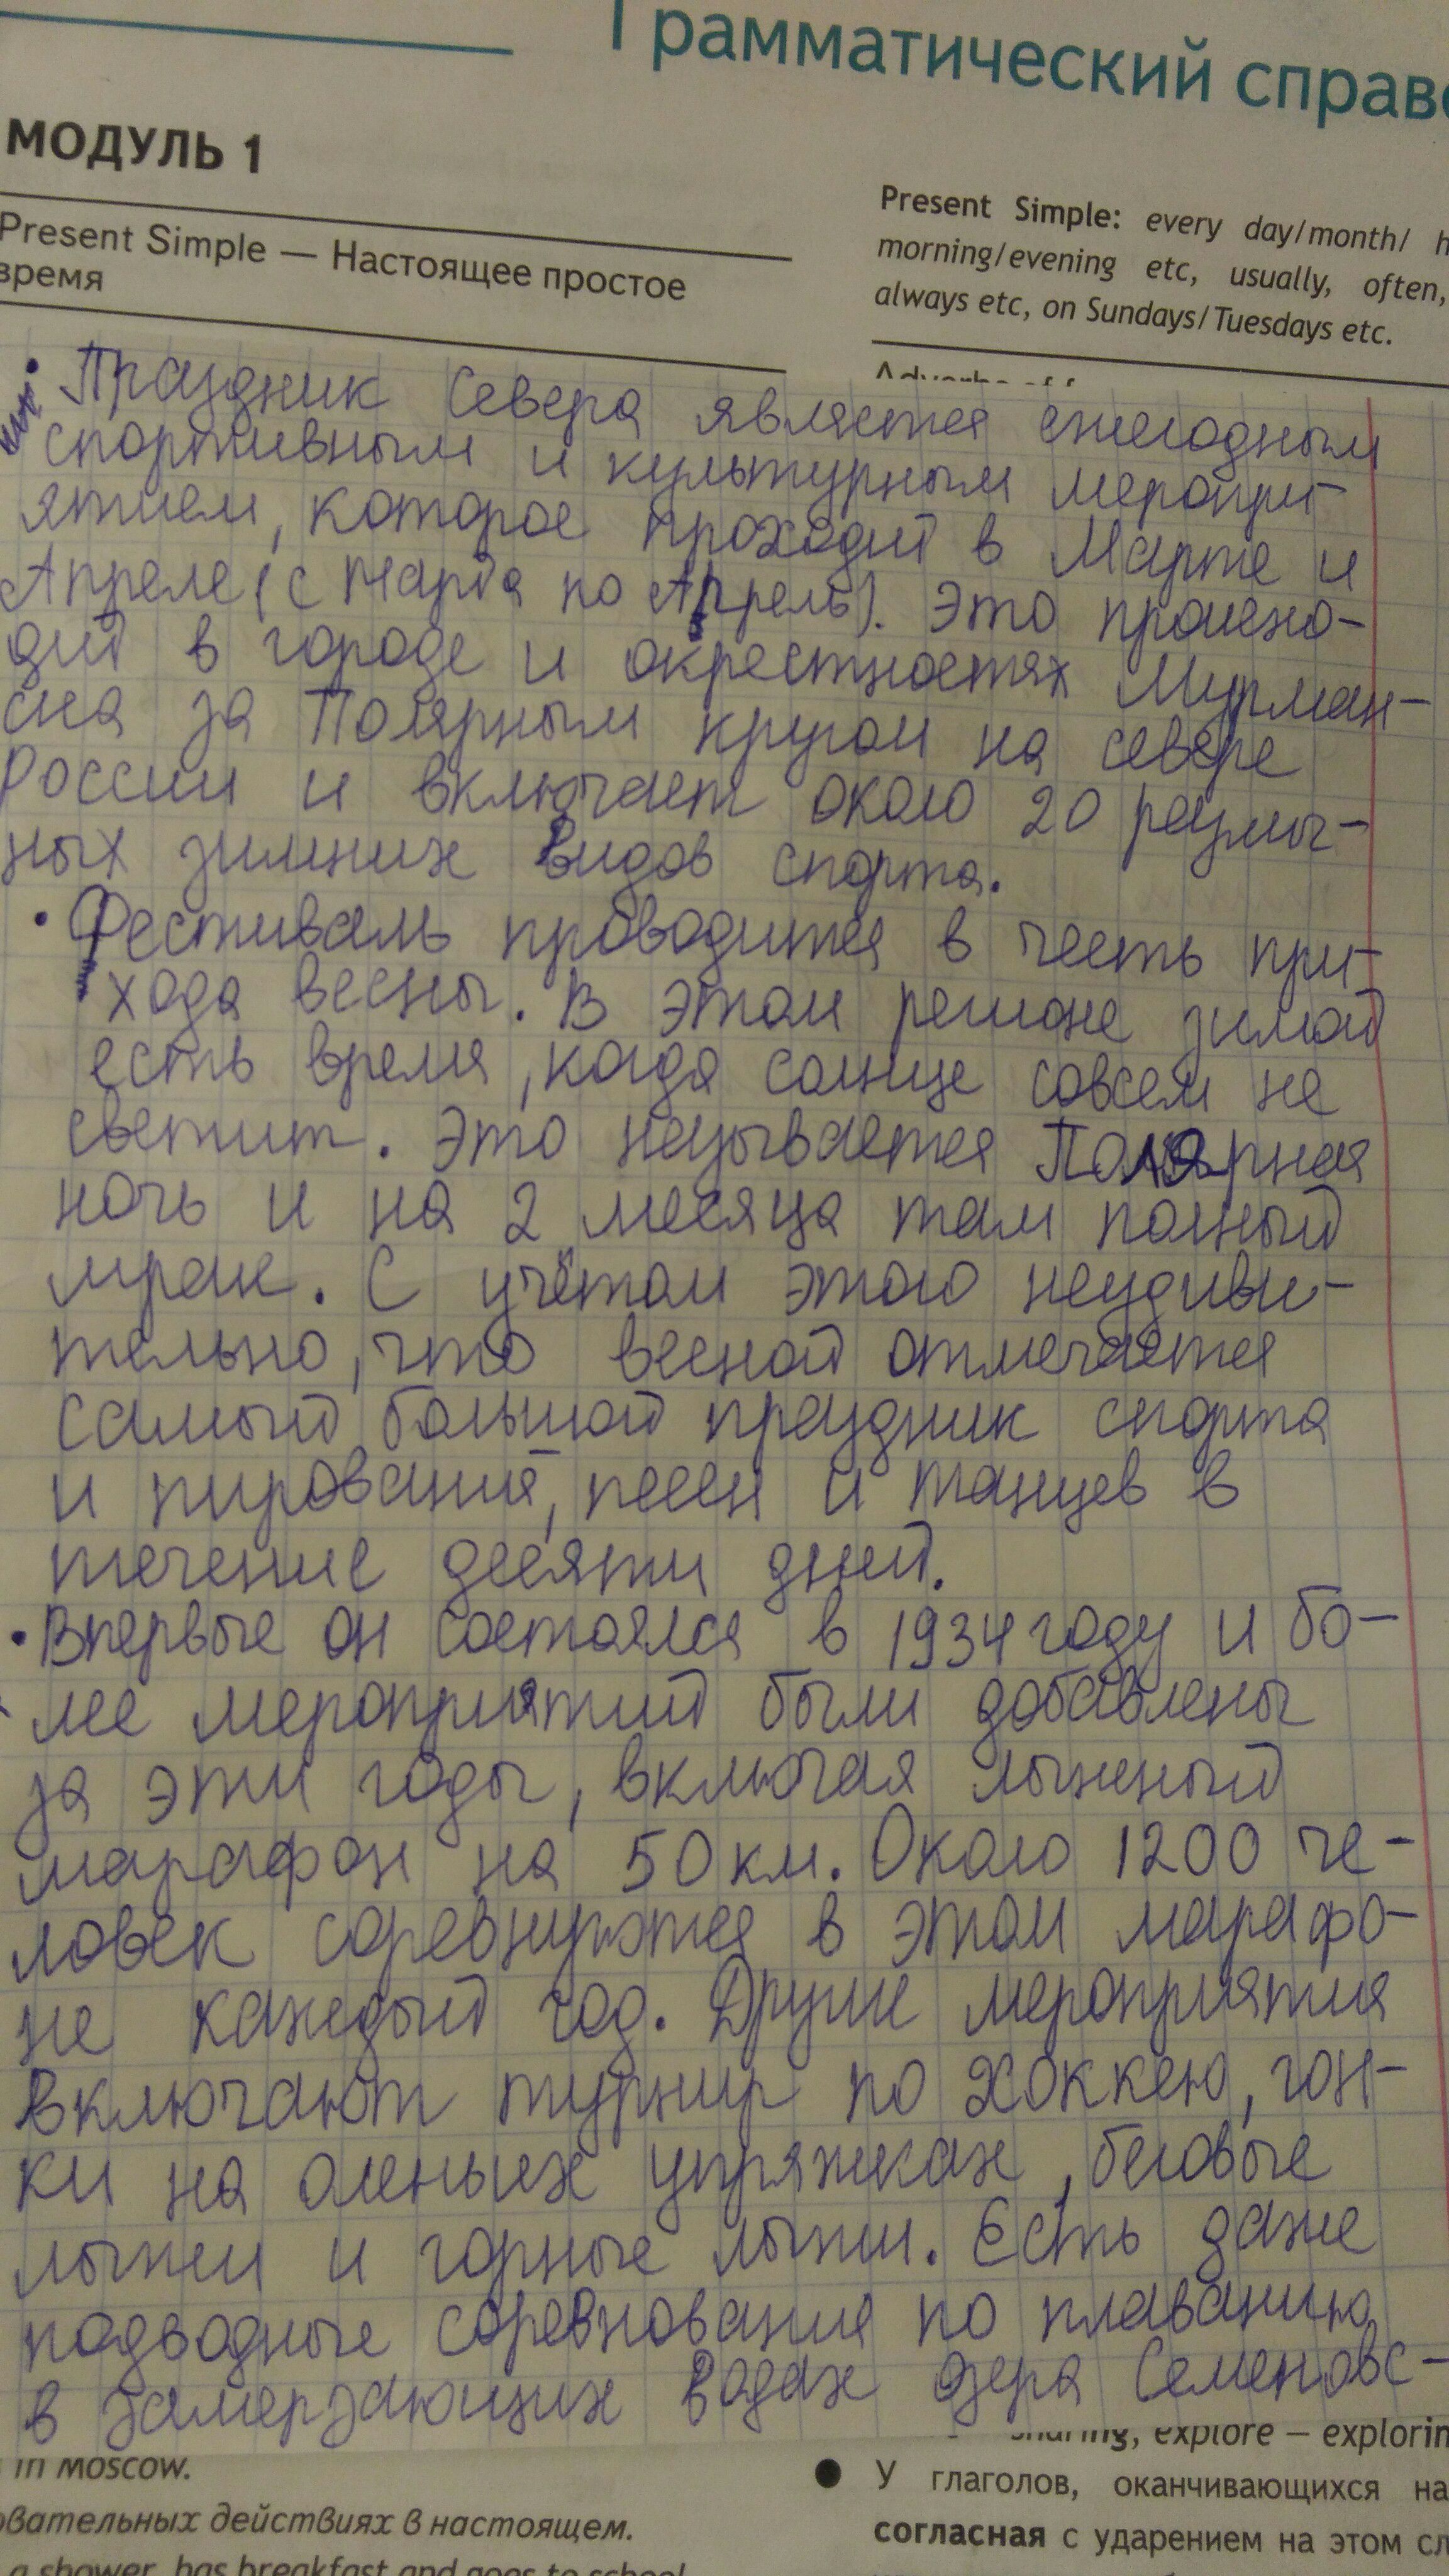 Грамматический справо
МОДУЛЬ 1
Present Simple — Настоящее простое
время
Present Simple: every day/month/
morning/evening etc, usually, often,
always etc, on Sundays/Tuesdays etc.
• Праздник Севера является ежегодным
спортивным и культурным меропри-
ятием, которое проходит в Марте и
Апреле (с Марта по Апрель). Это происхо-
дит в городе и окрестностях Мурман-
ска за Полярным кругом на севере
России и включает около 20 различ-
ных зимних видов спорта.
• Фестиваль проводится в честь при-
хода весны. В этом регионе зимой
есть время, когда солнце совсем не
светит. Это называется Полярная
ночь и на 2 месяца там полный
мрак. С учётом этого неудиви-
тельно, что весной отмечается
самый большой праздник спорта
и пирований, песен и танцев в
течение десяти дней.
• Впервые он состоялся в 1934 году и бо-
лее мероприятий были добавлены
за эти годы, включая лыжный
марафон на 50 км. Около 1200 че-
ловек соревнуются в этом марафо-
не каждый год. Другие мероприятия
включают турнир по хоккею, гон-
ки на оленьих упряжках, беговые
лыжи и горные лыжи. Есть даже
подводные соревнования по плаванию
в замерзающих водах озера Семеновс-
in Moscow.
овательных действиях в настоящем.
a shower, has breakfast and goes to school
sharing, explore – explorin
● У глаголов, оканчивающихся на
согласная с ударением на этом сл